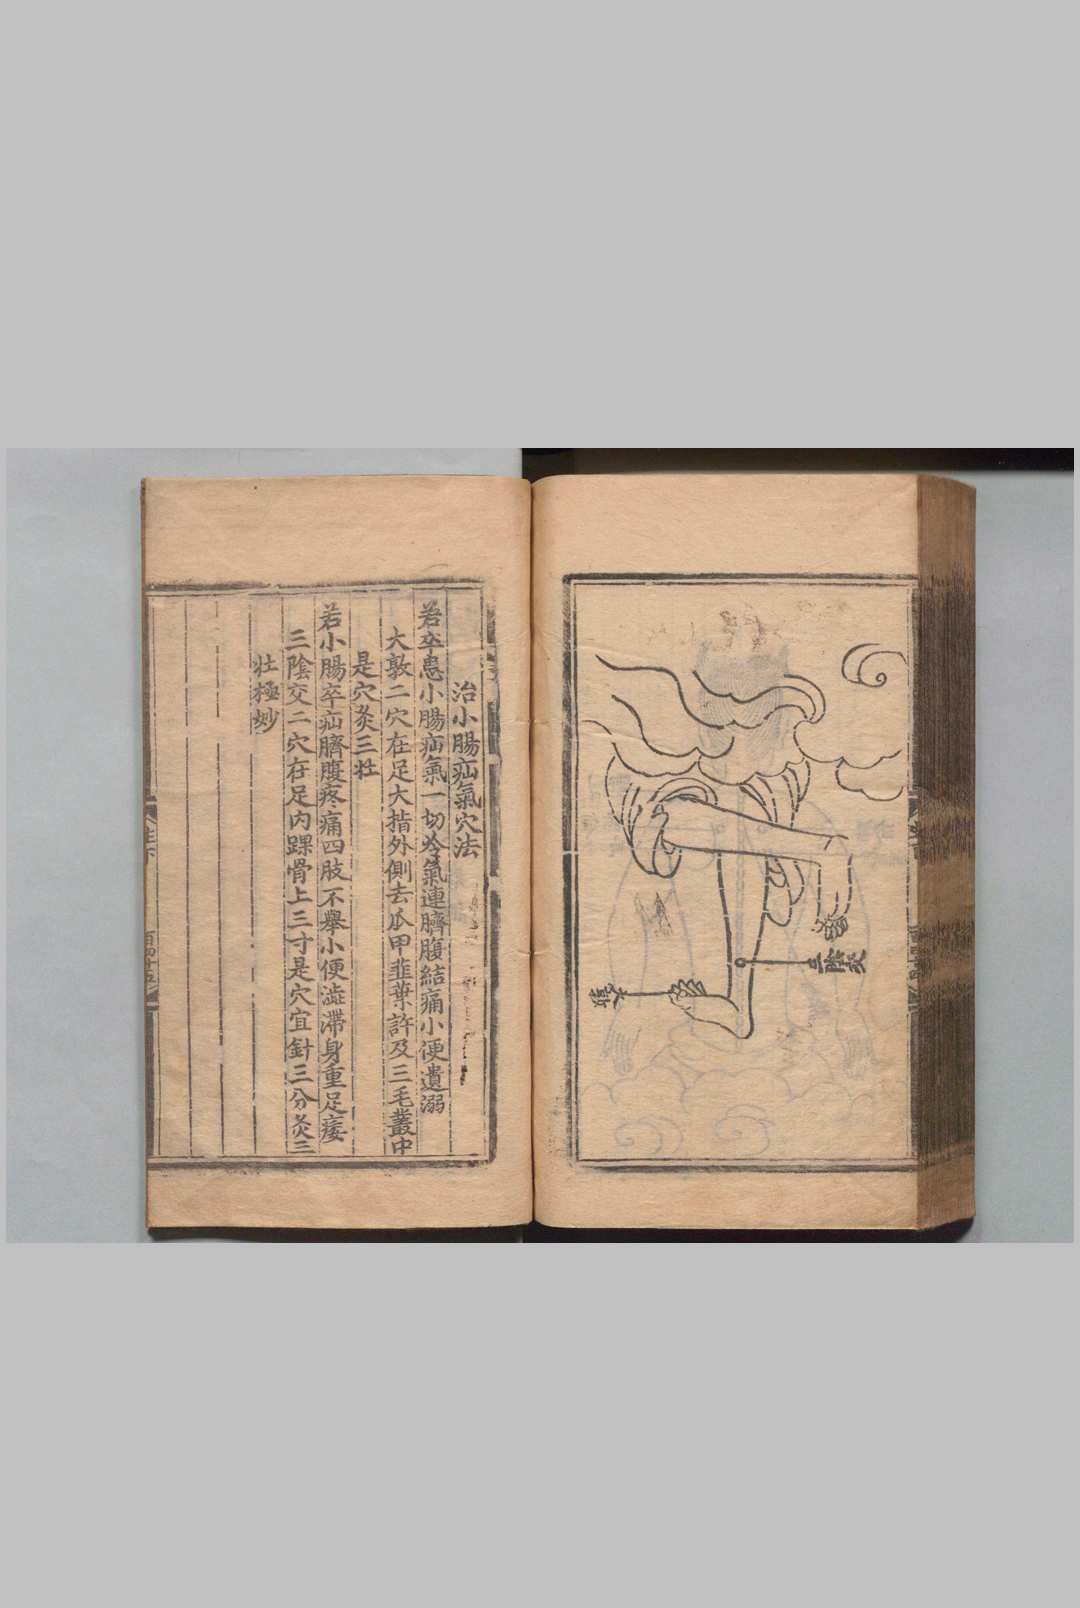 三陰交
大敦
治小腸疝氣穴法
若卒患小腸疝氣一切冷氣連臍腹結痛小便遺溺
大敦二穴在足大指外側去爪甲韭葉許及三毛叢中
是穴灸三壯
若小腸卒疝臍腹疼痛四肢不舉小便澁滯身重足痿
三陰交二穴在足內踝骨上三寸是穴宜針三分灸三
壯極妙
百四十五